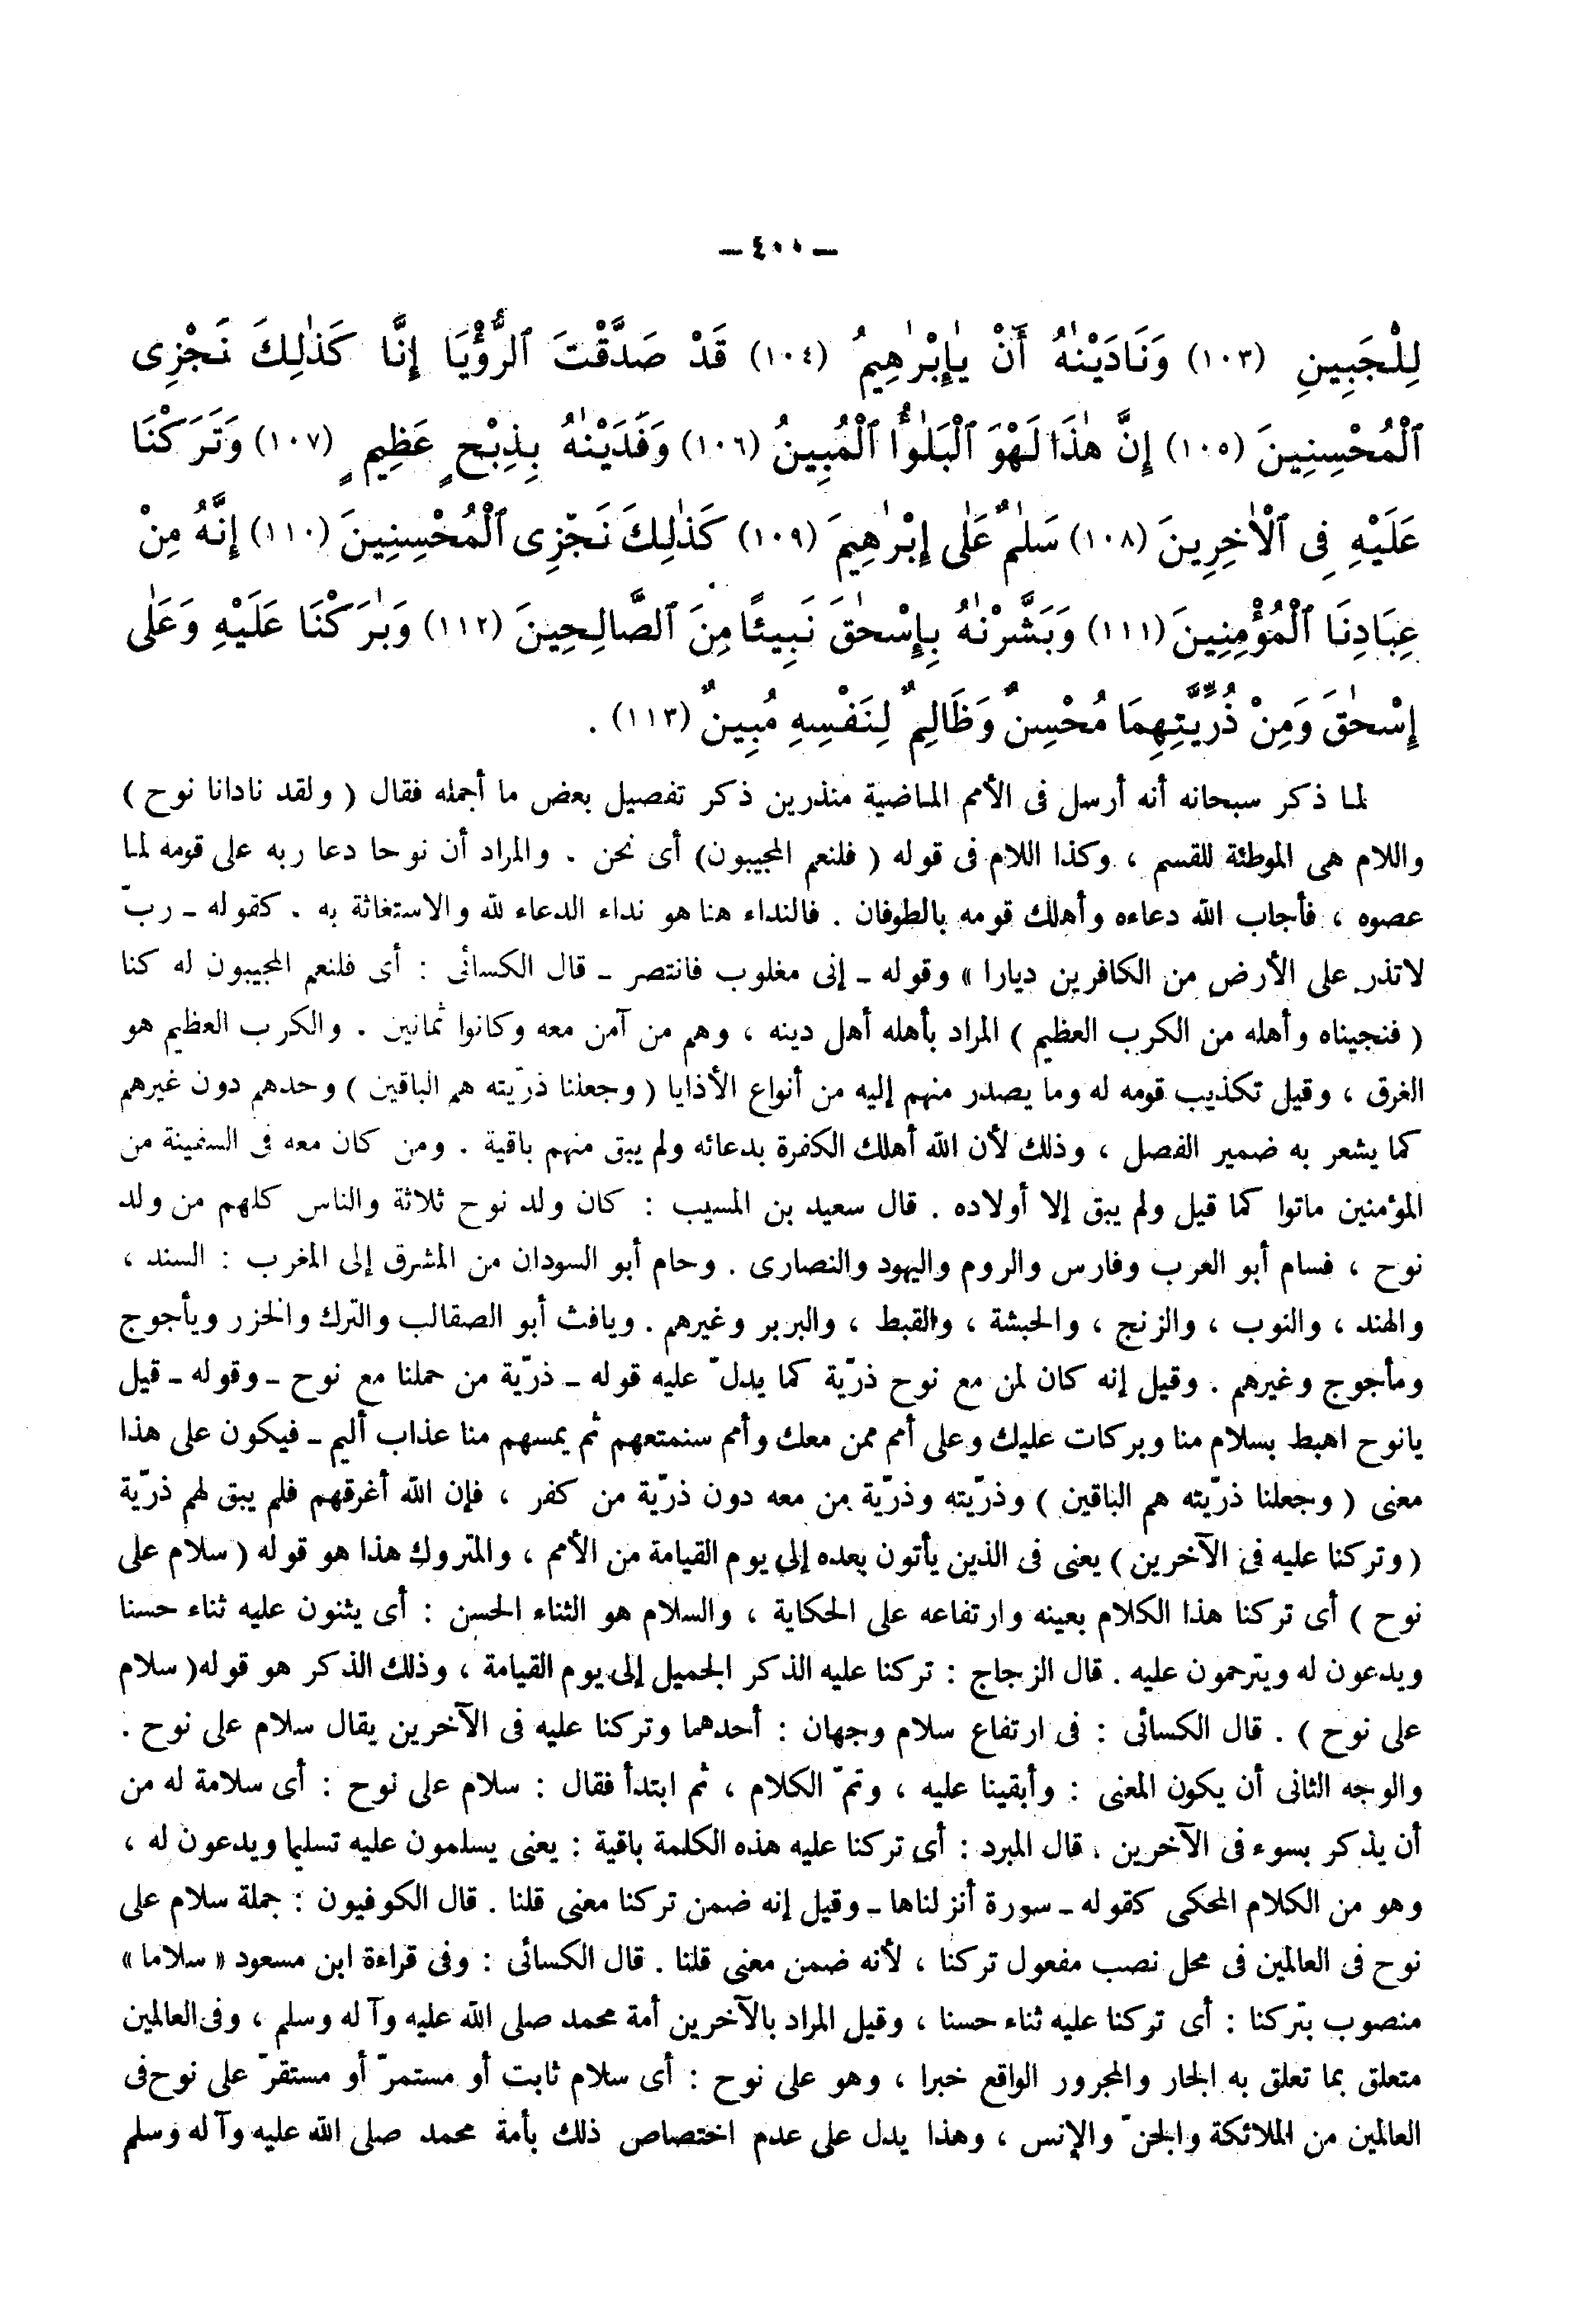 — ٤٠٠ —
لِلْجَبِينِ (١٠٣) وَنَادَيْنٰهُ أَنْ يٰإِبْرٰهِيمُ (١٠٤) قَدْ صَدَّقْتَ ٱلرُّؤْيَا إِنَّا كَذٰلِكَ نَجْزِى
ٱلْمُحْسِنِينَ (١٠٥) إِنَّ هٰذَا لَهْوَ ٱلْبَلٰؤُا ٱلْمُبِينُ (١٠٦) وَفَدَيْنٰهُ بِذِبْحٍ عَظِيمٍ (١٠٧) وَتَرَكْنَا
عَلَيْهِ فِى ٱلْاٰخِرِينَ (١٠٨) سَلٰمٌ عَلٰى إِبْرٰهِيمَ (١٠٩) كَذٰلِكَ نَجْزِى ٱلْمُحْسِنِينَ (١١٠) إِنَّهُ مِنْ
عِبَادِنَا ٱلْمُؤْمِنِينَ (١١١) وَبَشَّرْنٰهُ بِإِسْحٰقَ نَبِيئًا مِنَ ٱلصَّالِحِينَ (١١٢) وَبٰرَكْنَا عَلَيْهِ وَعَلٰى
إِسْحٰقَ وَمِنْ ذُرِّيَّتِهِمَا مُحْسِنٌ وَظَالِمٌ لِنَفْسِهِ مُبِينٌ (١١٣) .
لما ذكر سبحانه أنه أرسل فى الأمم الماضية منذرين ذكر تفصيل بعض ما أجمله فقال ( ولقد نادانا نوح )
واللام هى الموطئة للقسم ، وكذا اللام فى قوله ( فلنعم المجيبون) أى نحن . والمراد أن نوحا دعا ربه على قومه لما
عصوه ، فأجاب الله دعاءه وأهلك قومه بالطوفان . فالنداء هنا هو نداء الدعاء لله والاستغاثة به . كقوله ـ ربّ
لاتذر على الأرض من الكافرين ديارا » وقوله ـ إنى مغلوب فانتصر ـ قال الكسائى : أى فلنعم المجيبون له كنا
( فنجيناه وأهله من الكرب العظيم ) المراد بأهله أهل دينه ، وهم من آمن معه وكانوا ثمانين . والكرب العظيم هو
الغرق ، وقيل تكذيب قومه له وما يصدر منهم إليه من أنواع الأذايا ( وجعلنا ذرّيته هم الباقين ) وحدهم دون غيرهم
كما يشعر به ضمير الفصل ، وذلك لأن الله أهلك الكفرة بدعائه ولم يبق منهم باقية . ومن كان معه فى السفينة من
المؤمنين ماتوا كما قيل ولم يبق إلا أولاده . قال سعيد بن المسيب : كان ولد نوح ثلاثة والناس كلهم من ولد
نوح ، فسام أبو العرب وفارس والروم واليهود والنصارى . وحام أبو السودان من المشرق إلى المغرب : السند ،
والهند ، والنوب ، والزنج ، والحبشة ، والقبط ، والبربر وغيرهم . ويافث أبو الصقالب والترك والخزر ويأجوج
ومأجوج وغيرهم . وقيل إنه كان لمن مع نوح ذرّية كما يدلّ عليه قوله ـ ذرّية من حملنا مع نوح ـ وقوله ـ قيل
يانوح اهبط بسلام منا وبركات عليك وعلى أمم ممن معك وأمم سنمتعهم ثم يمسهم منا عذاب أليم ـ فيكون على هذا
معنى ( وجعلنا ذرّيته هم الباقين ) وذرّيته وذرّية من معه دون ذرّية من كفر ، فإن الله أغرقهم فلم يبق لهم ذرّية
( وتركنا عليه فى الآخرين ) يعنى فى الذين يأتون بعده إلى يوم القيامة من الأمم ، والمتروك هذا هو قوله ( سلام على
نوح ) أى تركنا هذا الكلام بعينه وارتفاعه على الحكاية ، والسلام هو الثناء الحسن : أى يثنون عليه ثناء حسنا
ويدعون له ويترحمون عليه . قال الزجاج : تركنا عليه الذكر الجميل إلى يوم القيامة ، وذلك الذكر هو قوله( سلام
على نوح ) . قال الكسائى : فى ارتفاع سلام وجهان : أحدهما وتركنا عليه فى الآخرين يقال سلام على نوح .
والوجه الثانى أن يكون المعنى : وأبقينا عليه ، وتمّ الكلام ، ثم ابتدأ فقال : سلام على نوح : أى سلامة له من
أن يذكر بسوء فى الآخرين . قال المبرد : أى تركنا عليه هذه الكلمة باقية : يعنى يسلمون عليه تسليما ويدعون له ،
وهو من الكلام المحكى كقوله ـ سورة أنزلناها ـ وقيل إنه ضمن تركنا معنى قلنا . قال الكوفيون : جملة سلام على
نوح فى العالمين فى محل نصب مفعول تركنا ، لأنه ضمن معنى قلنا . قال الكسائى : وفى قراءة ابن مسعود « سلاما »
منصوب بتركنا : أى تركنا عليه ثناء حسنا ، وقيل المراد بالآخرين أمة محمد صلى الله عليه وآله وسلم ، وفى العالمين
متعلق بما تعلق به الجار والمجرور الواقع خبرا ، وهو على نوح : أى سلام ثابت أو مستمرّ أو مستقرّ على نوح فى
العالمين من الملائكة والجنّ والإنس ، وهذا يدل على عدم اختصاص ذلك بأمة محمد صلى الله عليه وآله وسلم